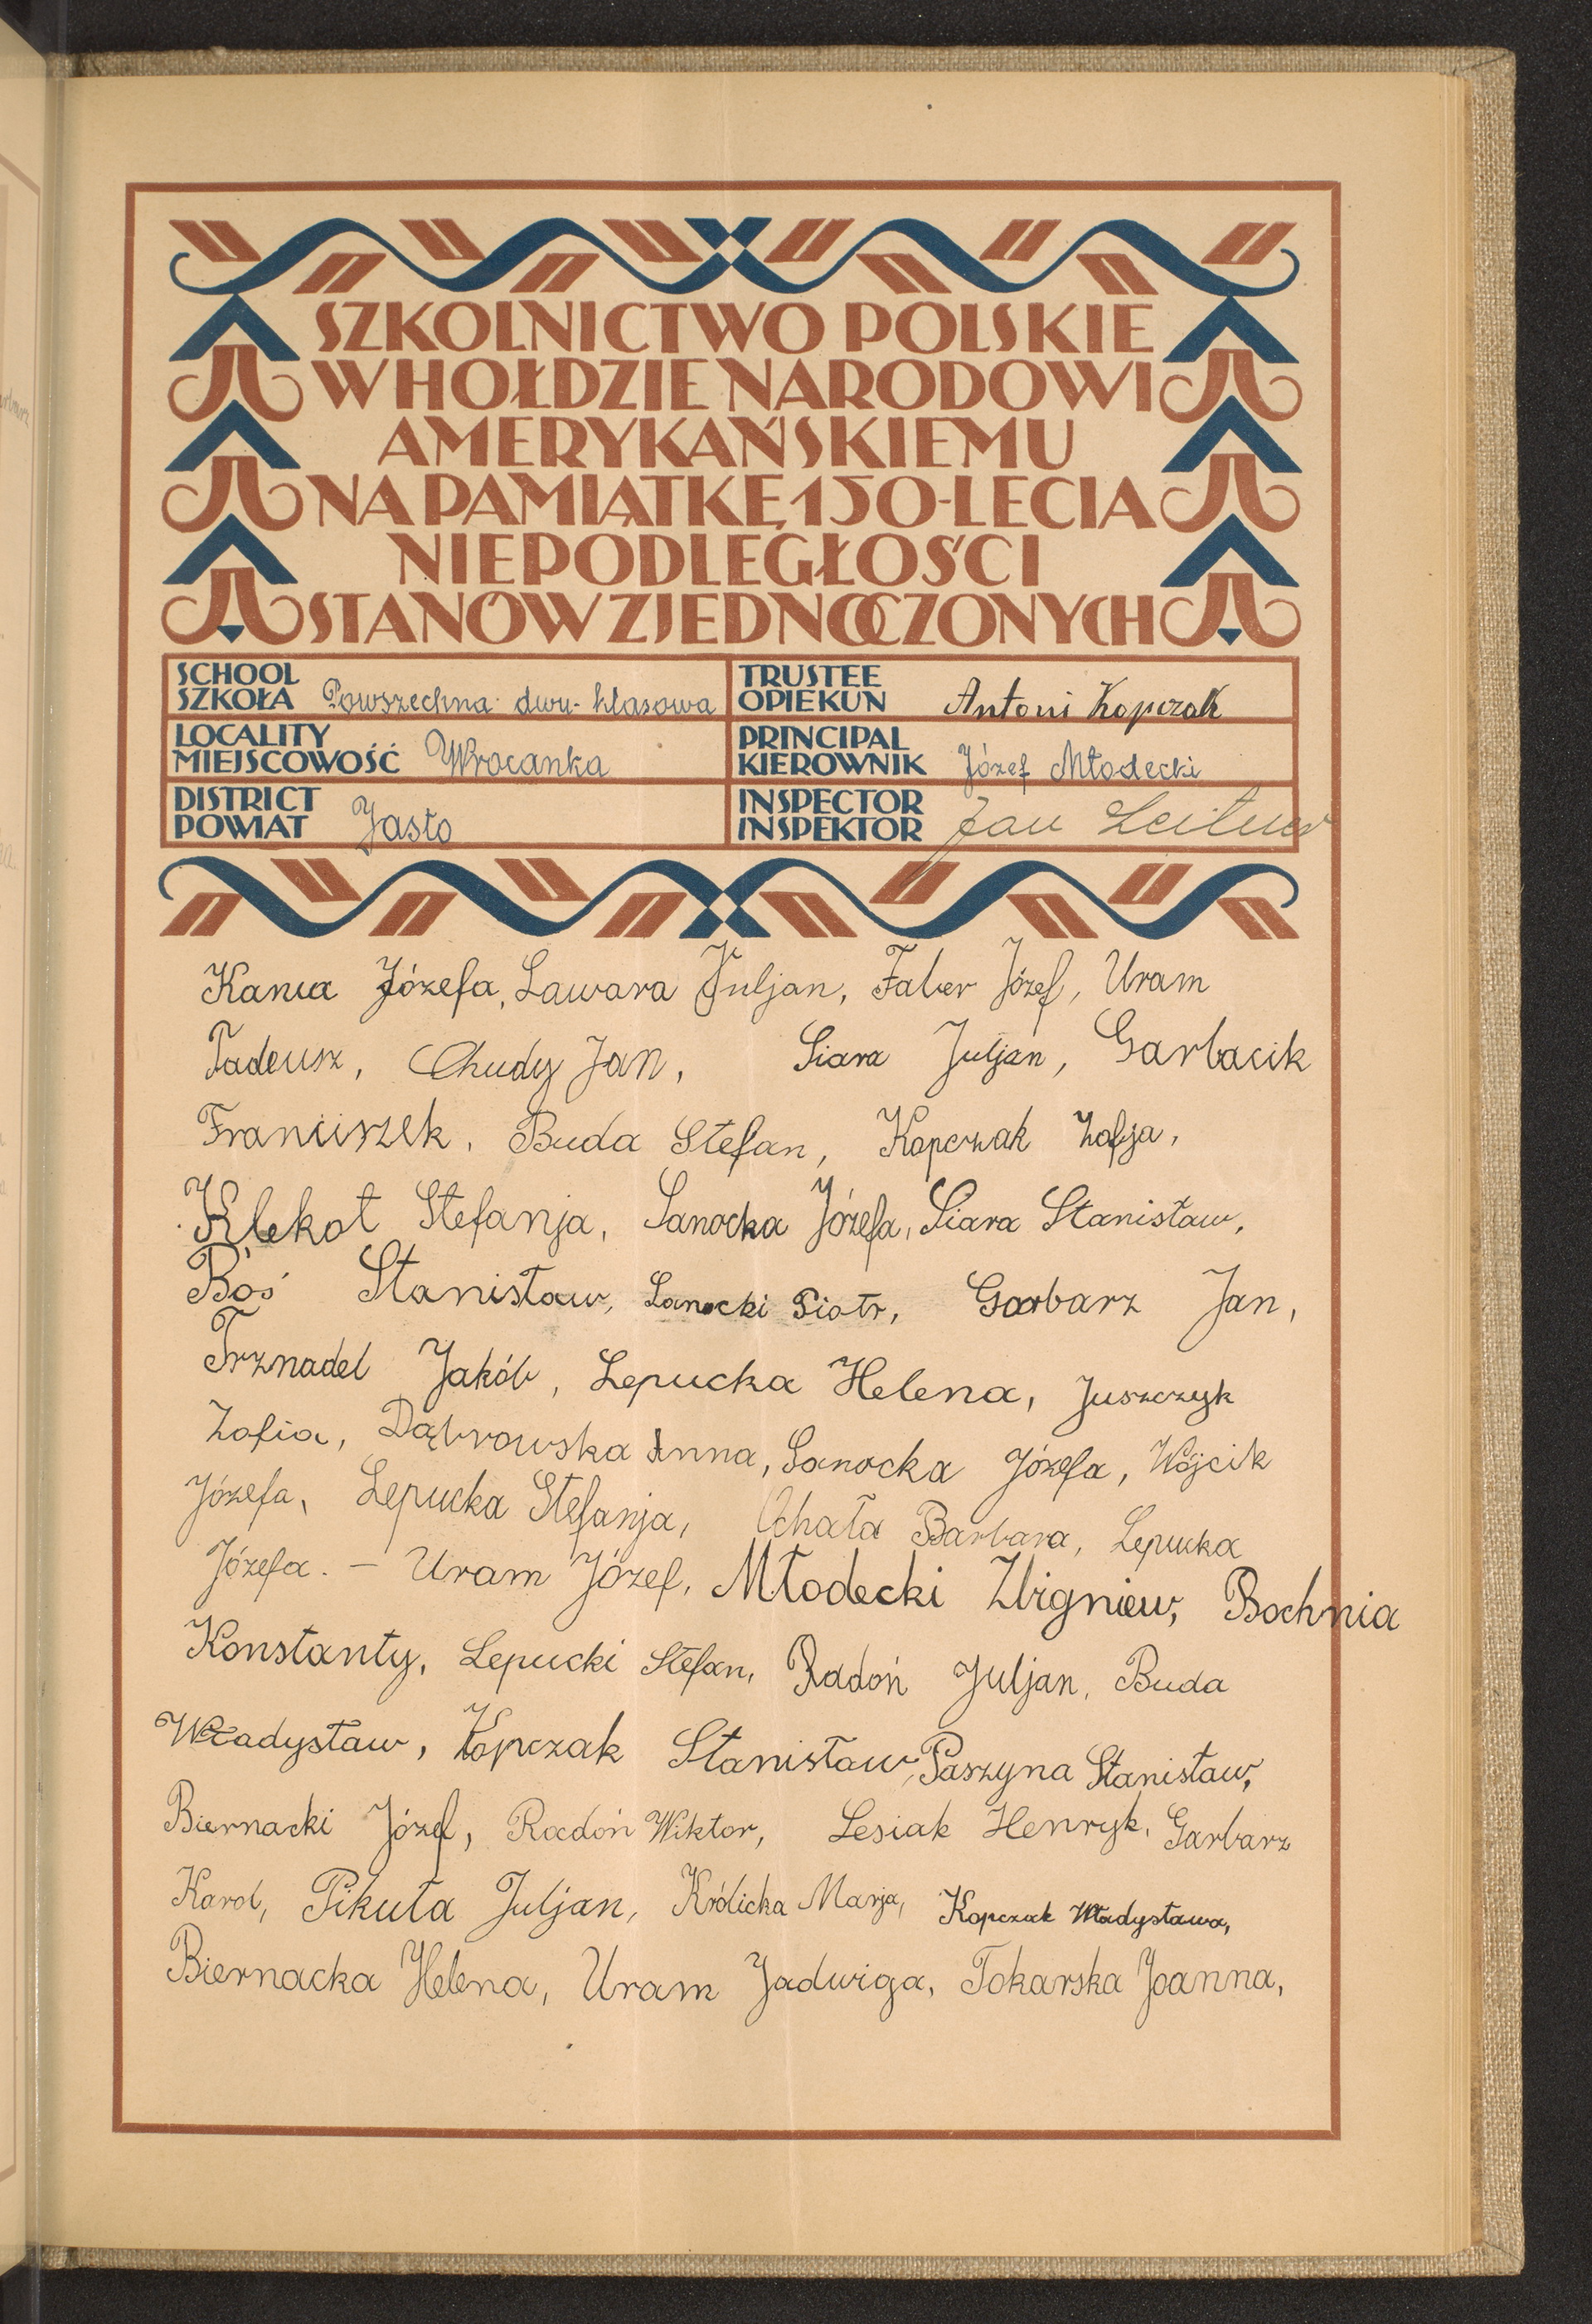 SZKOLNICTWO POLSKIE
W HOŁDZIE NARODOWI
AMERYKAŃSKIEMU
NA PAMIĄTKĘ 150-LECIA
NIEPODLEGŁOŚCI
STANÓW ZJEDNOCZONYCH
SCHOOL
SZKOŁA Powszechna dwu-klasowa
TRUSTEE
OPIEKUN Antoni Kopczak
LOCALITY
MIEJSCOWOŚĆ Wrocanka
PRINCIPAL
KIEROWNIK Józef Młodecki
DISTRICT
POWIAT Jasło
INSPECTOR
INSPEKTOR Jan Leitner
Kania Józefa, Lawara Juljan, Faber Józef, Uram
Tadeusz, Chudy Jan, Siara Juljan, Garbacik
Franciszek, Buda Stefan, Kopczak Zofja,
Klekot Stefanja, Sanocka Józefa, Siara Stanisław,
Boś Stanisław, Sanocki Piotr, Garbarz Jan,
Trznadel Jakób, Lepucka Helena, Juszczyk
Zofia, Dąbrowska Anna, Sanocka Józefa, Wójcik
Józefa, Lepucka Stefanja, Ochała Barbara, Lepucka
Józefa. – Uram Józef, Młodecki Zbigniew, Bochnia
Konstanty, Lepucki Stefan, Radoń Juljan, Buda
Władysław, Kopczak Stanisław, Paszyna Stanisław,
Biernacki Józef, Radoń Wiktor, Lesiak Henryk, Garbarz
Karol, Pikuła Juljan, Królicka Marja, Kopczak Władysława,
Biernacka Helena, Uram Jadwiga, Tokarska Joanna,